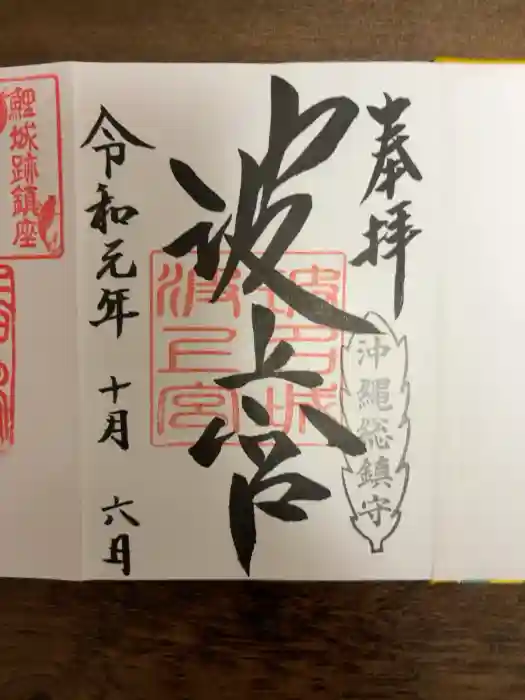 奉拝
沖縄総鎮守
波上宮
波上宮
令和元年 十月 六日
鯉城跡鎮座